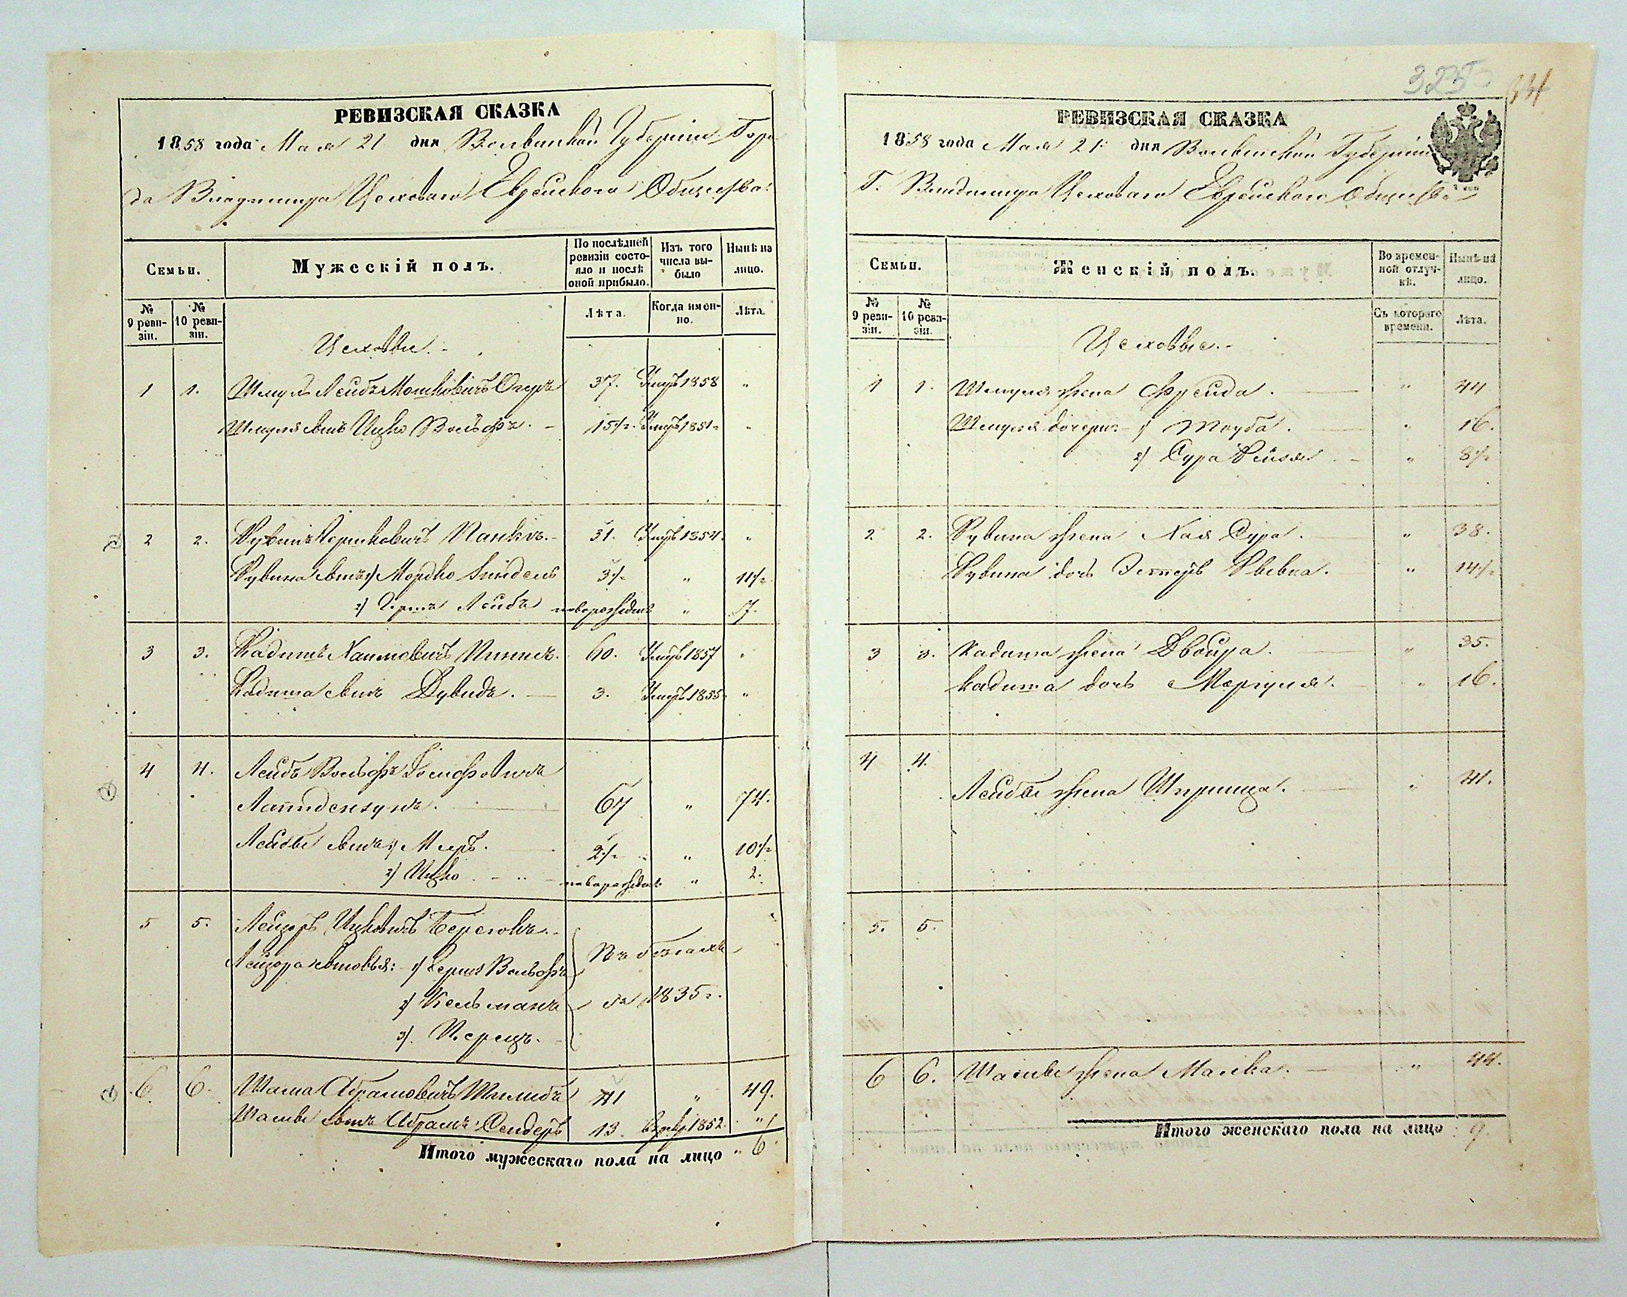 РЕВИЗСКАЯ СКАЗКА
1858 года Мая 21 дня Волынской Губерніи Горо
да Владимира Цеховаго Еврейского Общества
Семьи.
Мужескій полъ.
По послѣдней ревизіи состояло и послѣ оной прибыло.
Изъ того числа выбыло
Нынѣ на лицо.
№ 9 ревизіи.
№ 10 ревизіи.
Лѣта.
Когда именно.
Лѣта.
Цеховые.
1 1. Шмуль Лейба Мошковичъ 37. Умеръ 1858 "
Шмуля сынъ Ицко Вольфъ. 15½ Умеръ 1851 "
2 2. Рувинъ 31. Умеръ 1854. "
Рувина сынъ 1) Мордко 3½ " 11½
2) Лейба новорожден. " 7.
3 3. Кадишъ Хаимовичъ 60. Умеръ 1857 "
Кадиша сынъ Дувидъ. 3. Умеръ 1855 "
4 4. Лейба Вольфъ
67 " 74.
Лейбы сынъ 1) Мееръ. 2½ " 10½
2) Ицко новорожден. " 2.
5 5. Лейзоръ Ицковичъ
Лейзора сыновья: 1) Вольфъ
Въ бегахъ
2) Кельманъ
съ 1835 г.
3). Перецъ.
6 6. Шама Абрамовичъ 41 " 49.
Шамы сынъ Абрамъ Сендеръ 13. 1852. "
Итого мужескаго пола на лицо 6
325
РЕВИЗСКАЯ СКАЗКА
1858 года Мая 21 дня Волынской Губерніи
Г. Владимира Цеховаго Еврейского Общества
Семьи.
Женскій полъ.
Во временной отлучкѣ.
Нынѣ на лицо.
№ 9 ревизіи.
№ 10 ревизіи.
Съ котораго времени.
Лѣта.
Цеховые.
1 1. Шмуля жена Фрейда. " 44
Шмуля дочери 1) Тауба. " 16.
2) Сура Бейля. " 8½
2 2. Рувина жена Хая Сура. " 38.
Рувина дочь Ривка. " 14½
3 3. Кадиша жена Двойра. " 35.
Кадиша дочь Маргуля. " 16.
4 4. Лейбы жена Шпринца. " 41.
5. 5.
6 6. Шамы жена Малка. " 44.
Итого женскаго пола на лицо 9.